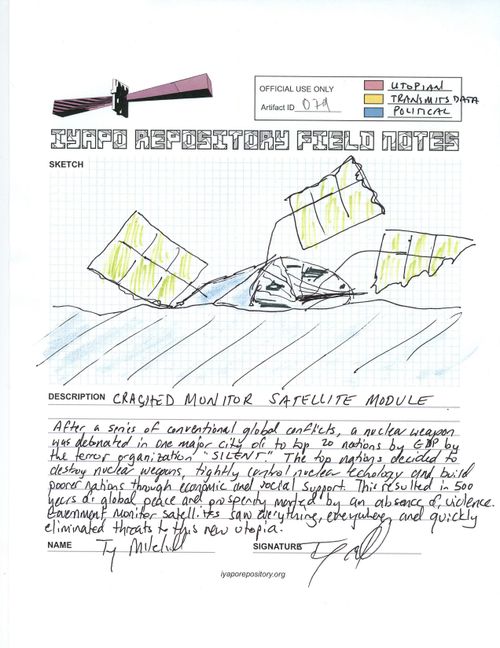 OFFICIAL USE ONLY
Artifact ID 079
UTOPIAN
TRANSMITS DATA
POLITICAL
IYAPO REPOSITORY FIELD NOTES
SKETCH
DESCRIPTION CRASHED MONITOR SATELLITE MODULE
After a series of conventional global conflicts, a nuclear weapon
was detonated in one major city of to top 20 nations by GDP by
the terror organization "SILENT". The top nations decided to
destroy nuclear weapons, tightly control nuclear techology and build
poorer nations through economic and social support. This resulted in 500
years of global peace and prosperity marked by an absence of violence.
Government monitor satellites saw everything, everywhere, and quickly
eliminated threats to this new utopia.
NAME Ty Mitchell SIGNATURE
iyaporepository.org